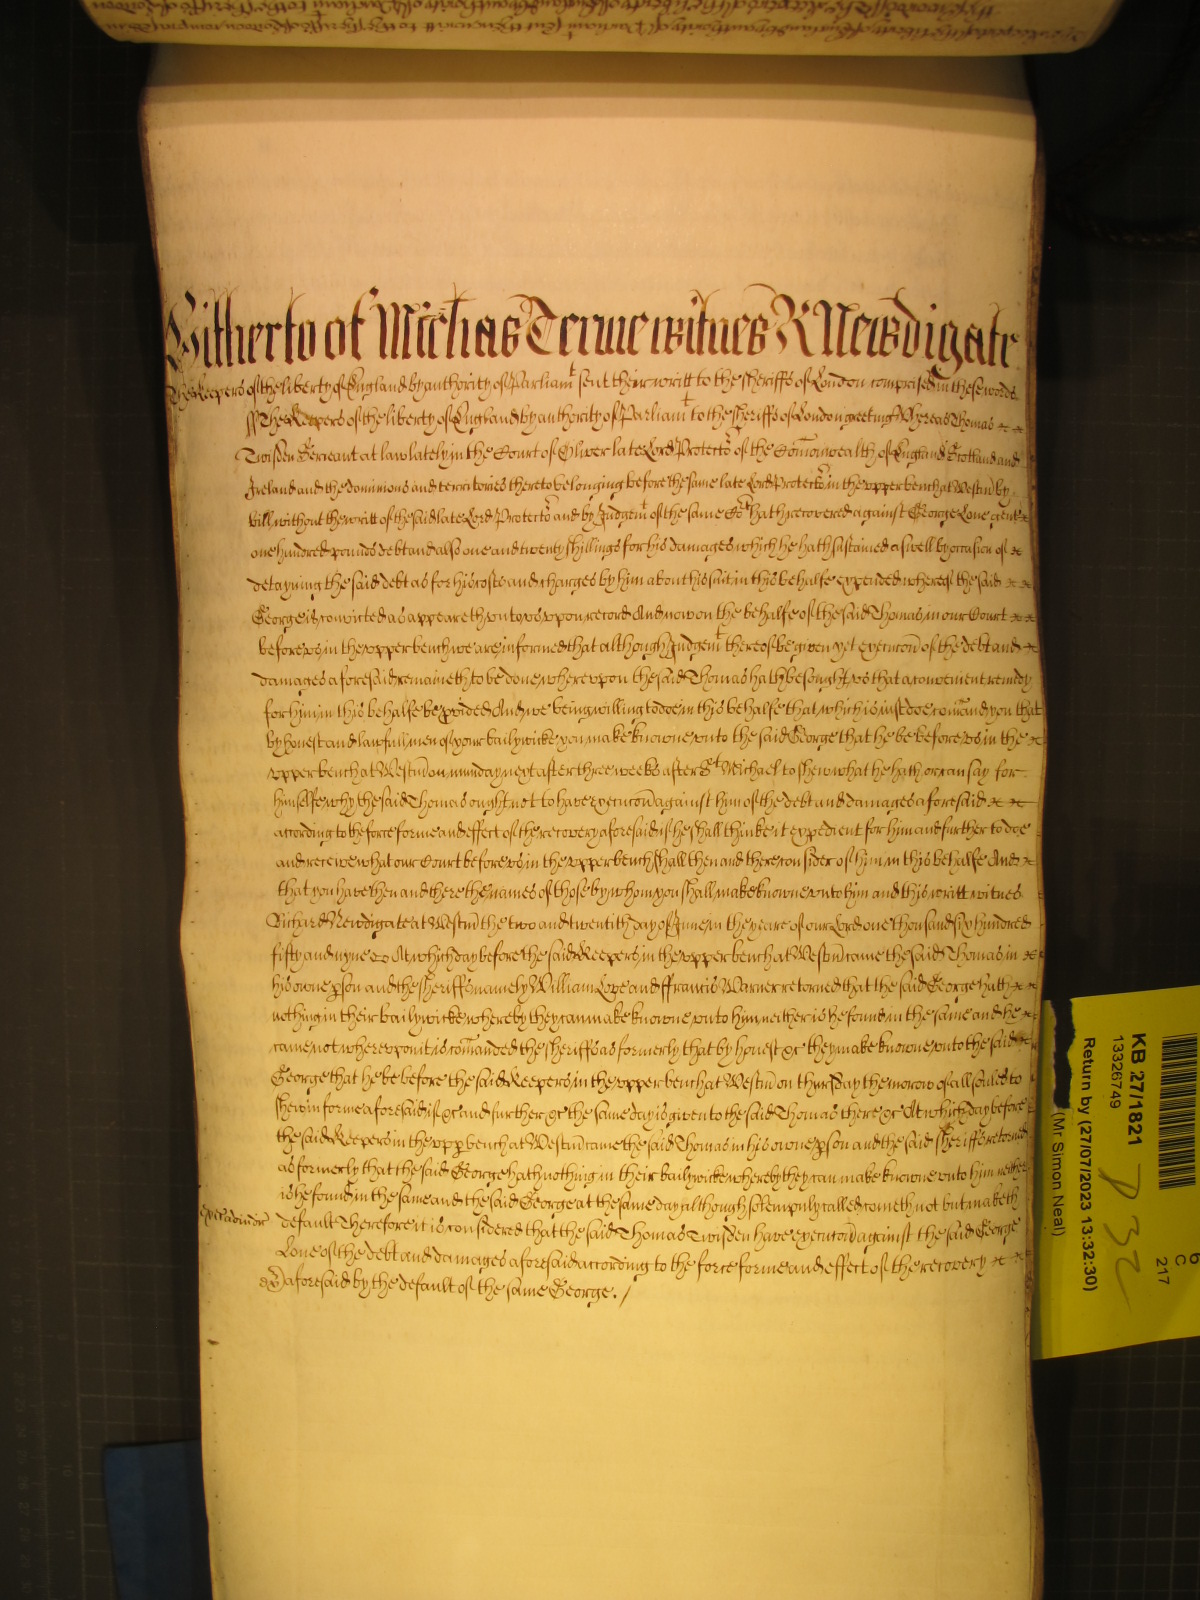 Hitherto of Michas Terme witnes R Newdigate
The Keepers of the liberty of England by authority of Parliamt sent their writt to the Sheriffs of London comprised in these words
ss The Keepers of the liberty of England by authority of Parliamt to the Sheriffs of London greeting Whereas Thomas
Twisden Serieant at law lately in the Court of Oliver late Lord Protector of the Comonwealth of England Scotland and
Ireland and the dominions and territories thereto belonging before the same late Lord Protector in the upper bench at Westm by
bill without the writt of the said late Lord Protector and by Judgemt of the same Cort hath recovered against George Lone gent
one hundred pounds debt and also one and twenty shillings for his damages which he hath sustained aswell by occasion of
detayning the said debt as for his costs and charges by him about his suit in this behalfe expended whereof the said
George is convicted as appeareth unto us upon record And now on the behalfe of the said Thomas in our Court
before us in the upper bench we are informed that although Judgemt thereof be given yet execucon of the debt and
damages aforesaid remaineth to be done whereupon the said Thomas hath besought us that a convenient remidy
for him in this behalfe be pvided And we being willing to doe in this behalfe that which is iust doe comand you that
by honest and lawfull men of your bailywicke you make knowne unto the said George that he be before us in the
upper bench at Westm on munday next after three weeks after St Michael to shew what he hath or can say for
himselfe why the said Thomas ought not to have execucon against him of the debt and damages aforesaid
according to the force forme and effect of the recovery aforesaid if he shall thinke it expedient for him and further to doe
and receive what our Court before us in the upper bench shall then and there consider of him in this behalfe And
that you have then and there the names of those by whom you shall make knowne unto him and this writt witnes
Richard Newdigate at Westm the two and twentith day of June in the yeare of our Lord one thousand six hundred
fifty and nyne At which day before the said Keepers in the upper bench at Westm came the said Thomas in
his owne pson and the Sheriffs namely William Love and ffrancis Warner retorned that the said George hath
nothing in their bailywicke whereby they can make knowne unto him neither is he found in the same and he
came not whereupon it is comanded the Sheriffs as formerly that by honest &c they make knowne unto the said
George that he be before the said Keepers in the upper bench at Westm on thursday the morow of all soules to
shew in forme aforesaid if &c and further &c the same day is given to the said Thomas there &c At which day before
the said Keepers in the upp bench at Westm came the said Thomas in his owne pson and the said Sheriffs retorned
as formerly that the said George hath nothing in their bailywicke whereby they can make knowne unto him neither
is he found in the same and the said George at the same day although solempnly called cometh not but maketh
default Therefore it is considered that the said Thomas Twisden have execucon against the said George
Lone of the debt and damages aforesaid according to the force forme and effect of the recovery
aforesaid by the default of the same George.
KB 27/1821
13326749
Return by (27/07/2023 13:32:30)
(Mr Simon Neal)
6
C
217